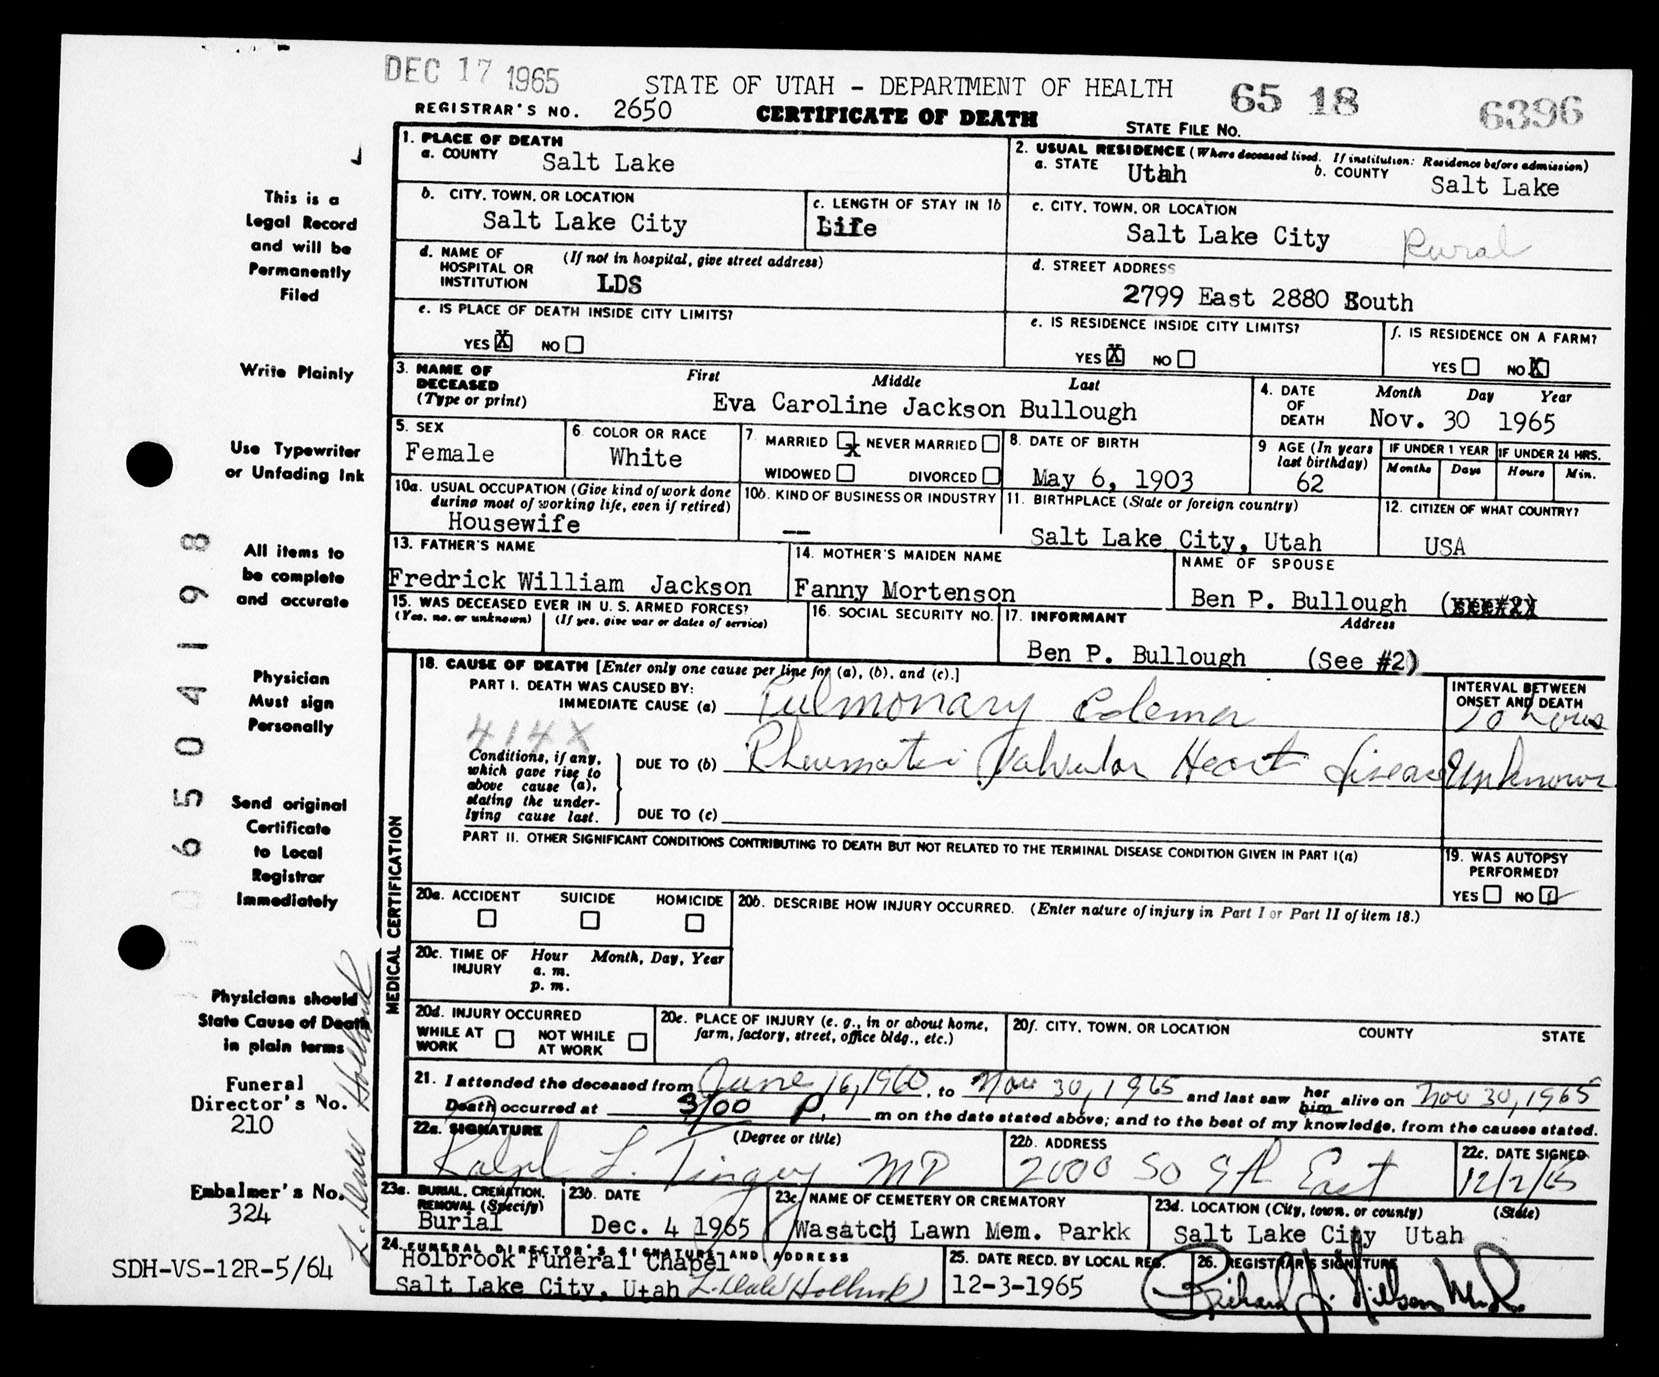 DEC 17 1965
STATE OF UTAH - DEPARTMENT OF HEALTH
65 18
6396
REGISTRAR'S NO. 2650
CERTIFICATE OF DEATH
STATE FILE NO.
1. PLACE OF DEATH
a. COUNTY Salt Lake
2. USUAL RESIDENCE (Where deceased lived. If institution: Residence before admission)
a. STATE Utah b. COUNTY Salt Lake
b. CITY, TOWN, OR LOCATION
Salt Lake City
c. LENGTH OF STAY IN 1b
Life
c. CITY, TOWN, OR LOCATION
Salt Lake City Rural
d. NAME OF HOSPITAL OR INSTITUTION (If not in hospital, give street address)
LDS
d. STREET ADDRESS
2799 East 2880 South
e. IS PLACE OF DEATH INSIDE CITY LIMITS?
YES X NO
e. IS RESIDENCE INSIDE CITY LIMITS?
YES X NO
f. IS RESIDENCE ON A FARM?
YES NO X
3. NAME OF DECEASED (Type or print)
First Middle Last
Eva Caroline Jackson Bullough
4. DATE OF DEATH
Month Day Year
Nov. 30 1965
5. SEX
Female
6. COLOR OR RACE
White
7. MARRIED X NEVER MARRIED
WIDOWED DIVORCED
8. DATE OF BIRTH
May 6, 1903
9 AGE (In years last birthday)
62
IF UNDER 1 YEAR
Months Days
IF UNDER 24 HRS.
Hours Min.
10a. USUAL OCCUPATION (Give kind of work done during most of working life, even if retired)
Housewife
10b. KIND OF BUSINESS OR INDUSTRY
--
11. BIRTHPLACE (State or foreign country)
Salt Lake City, Utah
12. CITIZEN OF WHAT COUNTRY?
USA
13. FATHER'S NAME
Fredrick William Jackson
14. MOTHER'S MAIDEN NAME
Fanny Mortenson
NAME OF SPOUSE
Ben P. Bullough (see #2)
15. WAS DECEASED EVER IN U. S. ARMED FORCES?
(Yes, no, or unknown) (If yes, give war or dates of service)
16. SOCIAL SECURITY NO.
17. INFORMANT Address
Ben P. Bullough (See #2)
MEDICAL CERTIFICATION
18. CAUSE OF DEATH [Enter only one cause per line for (a), (b), and (c).]
PART I. DEATH WAS CAUSED BY:
IMMEDIATE CAUSE (a) Pulmonary edema
INTERVAL BETWEEN ONSET AND DEATH
hours
414X
Conditions, if any, which gave rise to above cause (a), stating the under-lying cause last.
DUE TO (b) Rheumatic Valvular Heart disease Unknown
DUE TO (c)
PART II. OTHER SIGNIFICANT CONDITIONS CONTRIBUTING TO DEATH BUT NOT RELATED TO THE TERMINAL DISEASE CONDITION GIVEN IN PART I(a)
19. WAS AUTOPSY PERFORMED?
YES NO
20a. ACCIDENT SUICIDE HOMICIDE
20b. DESCRIBE HOW INJURY OCCURRED. (Enter nature of injury in Part I or Part II of item 18.)
20c. TIME OF INJURY Hour Month, Day, Year
a. m.
p. m.
20d. INJURY OCCURRED
WHILE AT WORK NOT WHILE AT WORK
20e. PLACE OF INJURY (e. g., in or about home, farm, factory, street, office bldg., etc.)
20f. CITY, TOWN, OR LOCATION COUNTY STATE
21. I attended the deceased from June 16, 1960, to Nov 30, 1965 and last saw her him alive on Nov 30, 1965
Death occurred at 3/00 P. m on the date stated above; and to the best of my knowledge, from the causes stated.
22a. SIGNATURE (Degree or title)
Ralph L. Tingey MD
22b. ADDRESS
2000 So 9th East
22c. DATE SIGNED
12/2/65
23a. BURIAL, CREMATION, REMOVAL (Specify)
Burial
23b. DATE
Dec. 4 1965
23c. NAME OF CEMETERY OR CREMATORY
Wasatch Lawn Mem. Parkk
23d. LOCATION (City, town, or county) (State)
Salt Lake City Utah
24. FUNERAL DIRECTOR'S SIGNATURE AND ADDRESS
Holbrook Funeral Chapel
Salt Lake City, Utah L. Dale Holbrook
25. DATE RECD. BY LOCAL REG.
12-3-1965
26. REGISTRAR'S SIGNATURE
Richard J. Nilson M.D.
This is a
Legal Record
and will be
Permanently
Filed
Write Plainly
Use Typewriter
or Unfading Ink
All items to
be complete
and accurate
Physician
Must sign
Personally
Send original
Certificate
to Local
Registrar
Immediately
Physicians should
State Cause of Death
in plain terms
Funeral
Director's No.
210
Embalmer's No.
324
SDH-VS-12R-5/64
L. Dale Holbrook
0 6 5 0 4 1 9 8